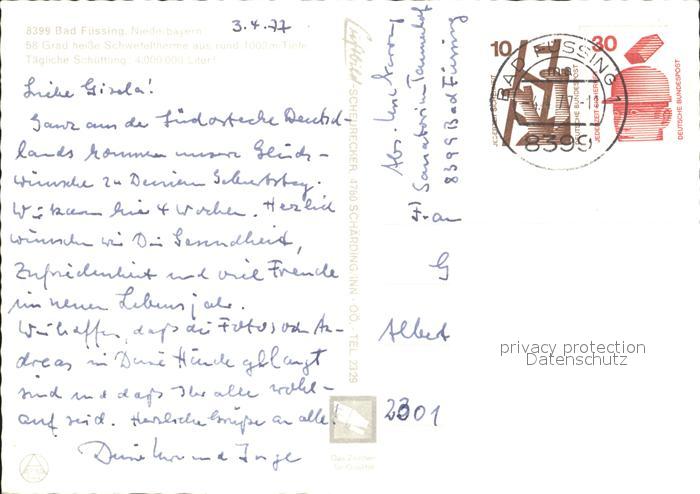 8399 Bad Füssing, Niederbayern
58 Grad heiße Schwefeltherme aus rund 1000 m Tiefe
Tägliche Schüttung: 4.000.000 Liter!
3.4.77
Liebe Gisela!
Ganz aus der Südostecke Deutsch-
lands kommen unsere Glück-
wünsche zu Deinem Geburtstag.
Wir kamen hier 4 Wochen. Herzlich
wünschen wir Dir Gesundheit,
Zufriedenheit und viel Freude
im neuen Lebensjahr.
Wir hoffen, daß die Fotos von An-
dreas in Deine Hände gelangt
sind und daß Ihr alle wohl-
auf seid. Herzliche Grüße an alle!
Deine und
Luftbild SCHEURECKER, 4780 SCHÄRDING/INN - OÖ. - TEL. 2329
Das Zeichen
für Qualität
Abs.
Sanatorium Tannenhof
8399 Bad Füssing
Frau
G
Albert
2301
10
30
DEUTSCHE BUNDESPOST
JEDERZEIT SICHERHEIT
DEUTSCHE BUNDESPOST
JEDERZEIT SICHERHEIT
BAD FÜSSING 1
ma
77
8399
privacy protection
Datenschutz